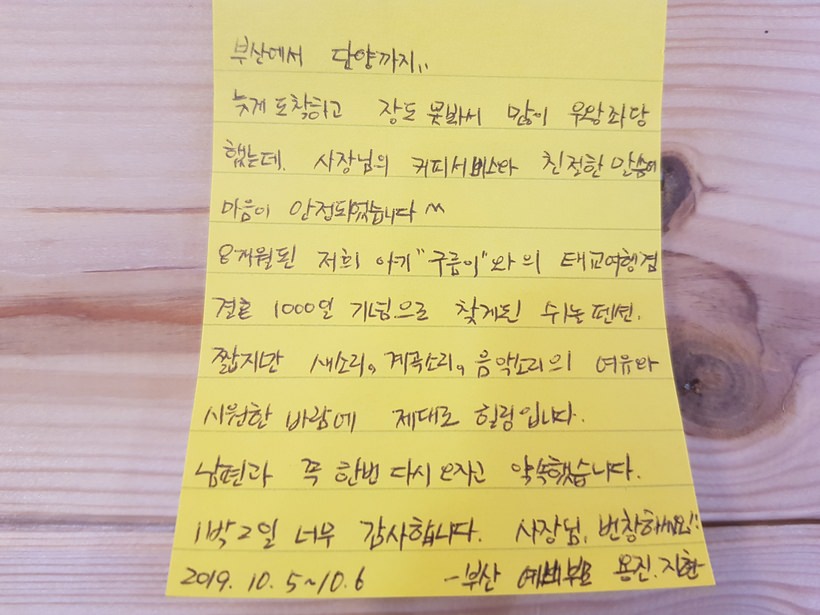 부산에서 단양까지..
늦게 도착하고 장도 못봐서 많이 우왕좌왕
했는데. 사장님의 커피서비스와 친절한 말씀에
마음이 안정되었습니다 ^^
8개월된 저희 아기 "구름이"와의 태교여행겸
결혼 1000일 기념으로 찾게된 쉬는펜션.
짧지만 새소리, 계곡소리, 음악소리의 여유와
시원한 바람에 제대로 힐링입니다.
남편과 꼭 한번 다시 오자고 약속했습니다.
1박2일 너무 감사합니다. 사장님, 번창하세요!!
2019. 10. 5~10.6 -부산 예비부모 용진.지현